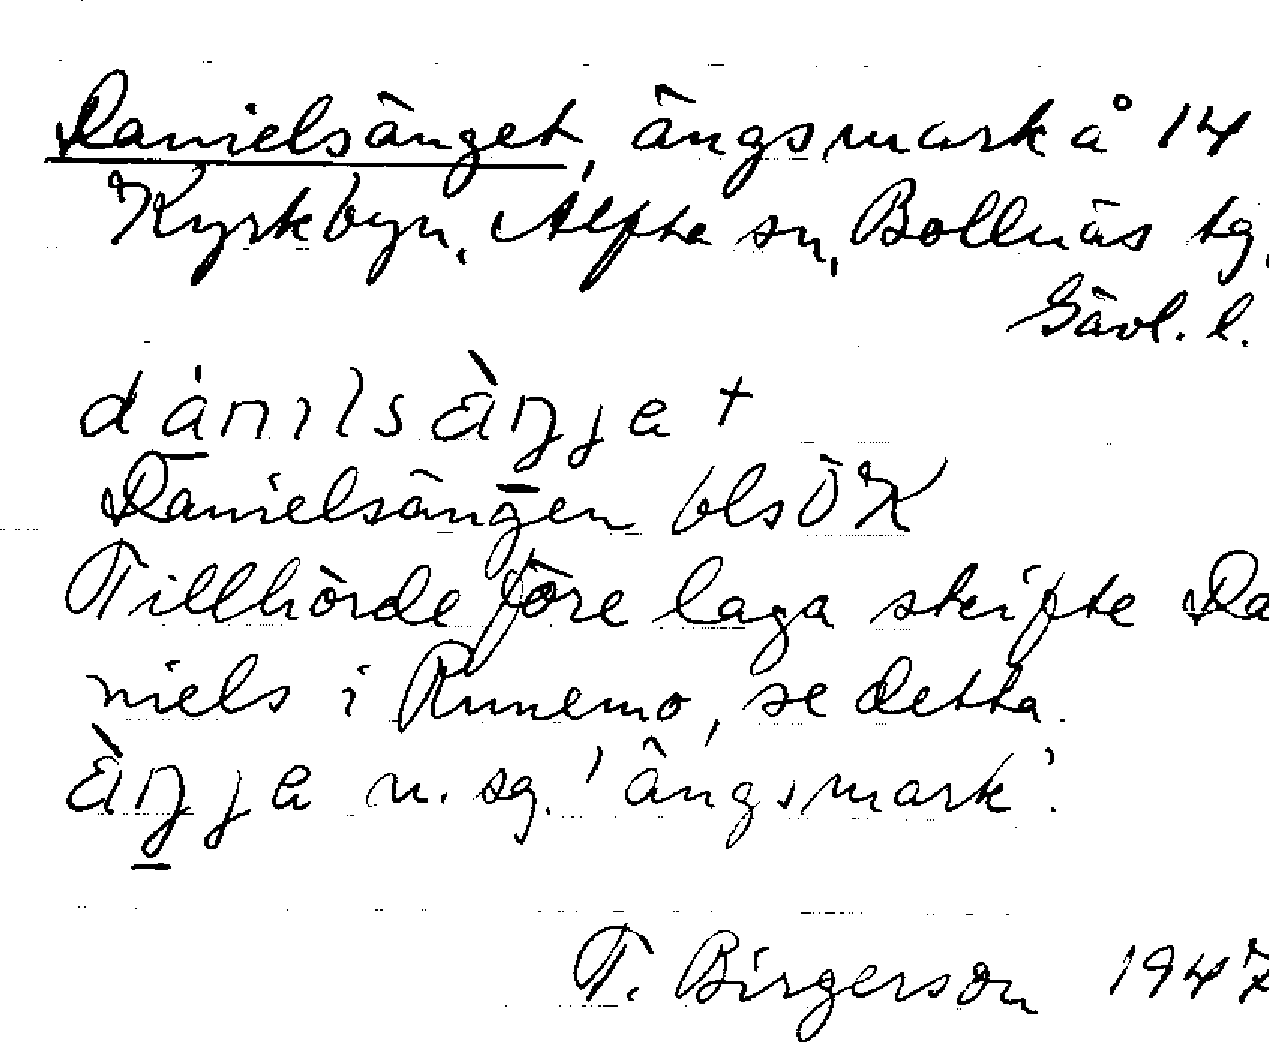 Danielsänget, ängsmark å 14
Kyrkbyn, Alfta sn, Bollnäs tg,
Gävl. l.
dánilsàŋja +
Danielsängen bls ÖK
Tillhörde före laga skifte Da
niels i Runemo, se detta.
àŋja n. sg. 'ängsmark'.
T. Birgerson 1947